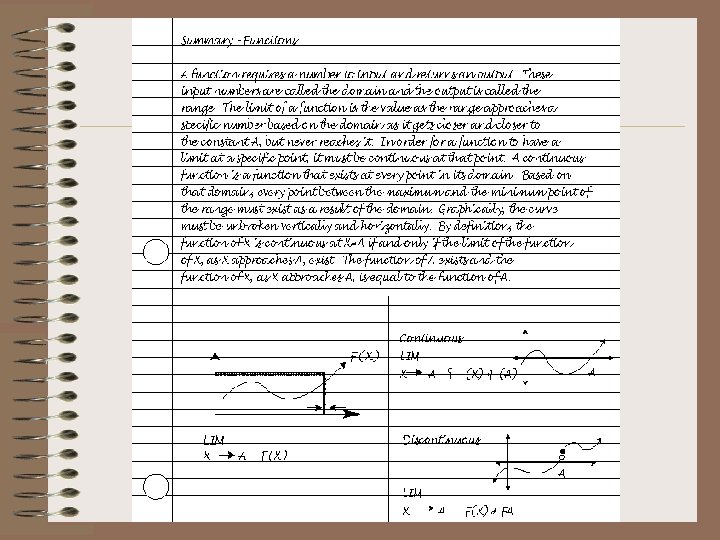 Summary - Functions
A function requires a number to input and returns an output. These
input numbers are called the domain and the output is called the
range. The limit of a function is the value as the range approaches a
specific number based on the domain, as it gets closer and closer to
the constant A, but never reaches it. In order for a function to have a
limit at a specific point, it must be continuous at that point. A continuous
function is a function that exists at every point in its domain. Based on
that domain, every point between the maximum and the minimum point of
the range must exist as a result of the domain. Graphically, the curve
must be unbroken vertically and horizontally. By definition, the
function of X is continuous at X=A if and only if the limit of the function
of X, as X approaches A, exist. The function of A exists and the
function of X, as X approaches A, is equal to the function of A.
F(X)
LIM
X → A F(X)
Continuous
LIM
X → A (X) (A)
A
Discontinuous
A
LIM
X → A F(X) ≠ FA